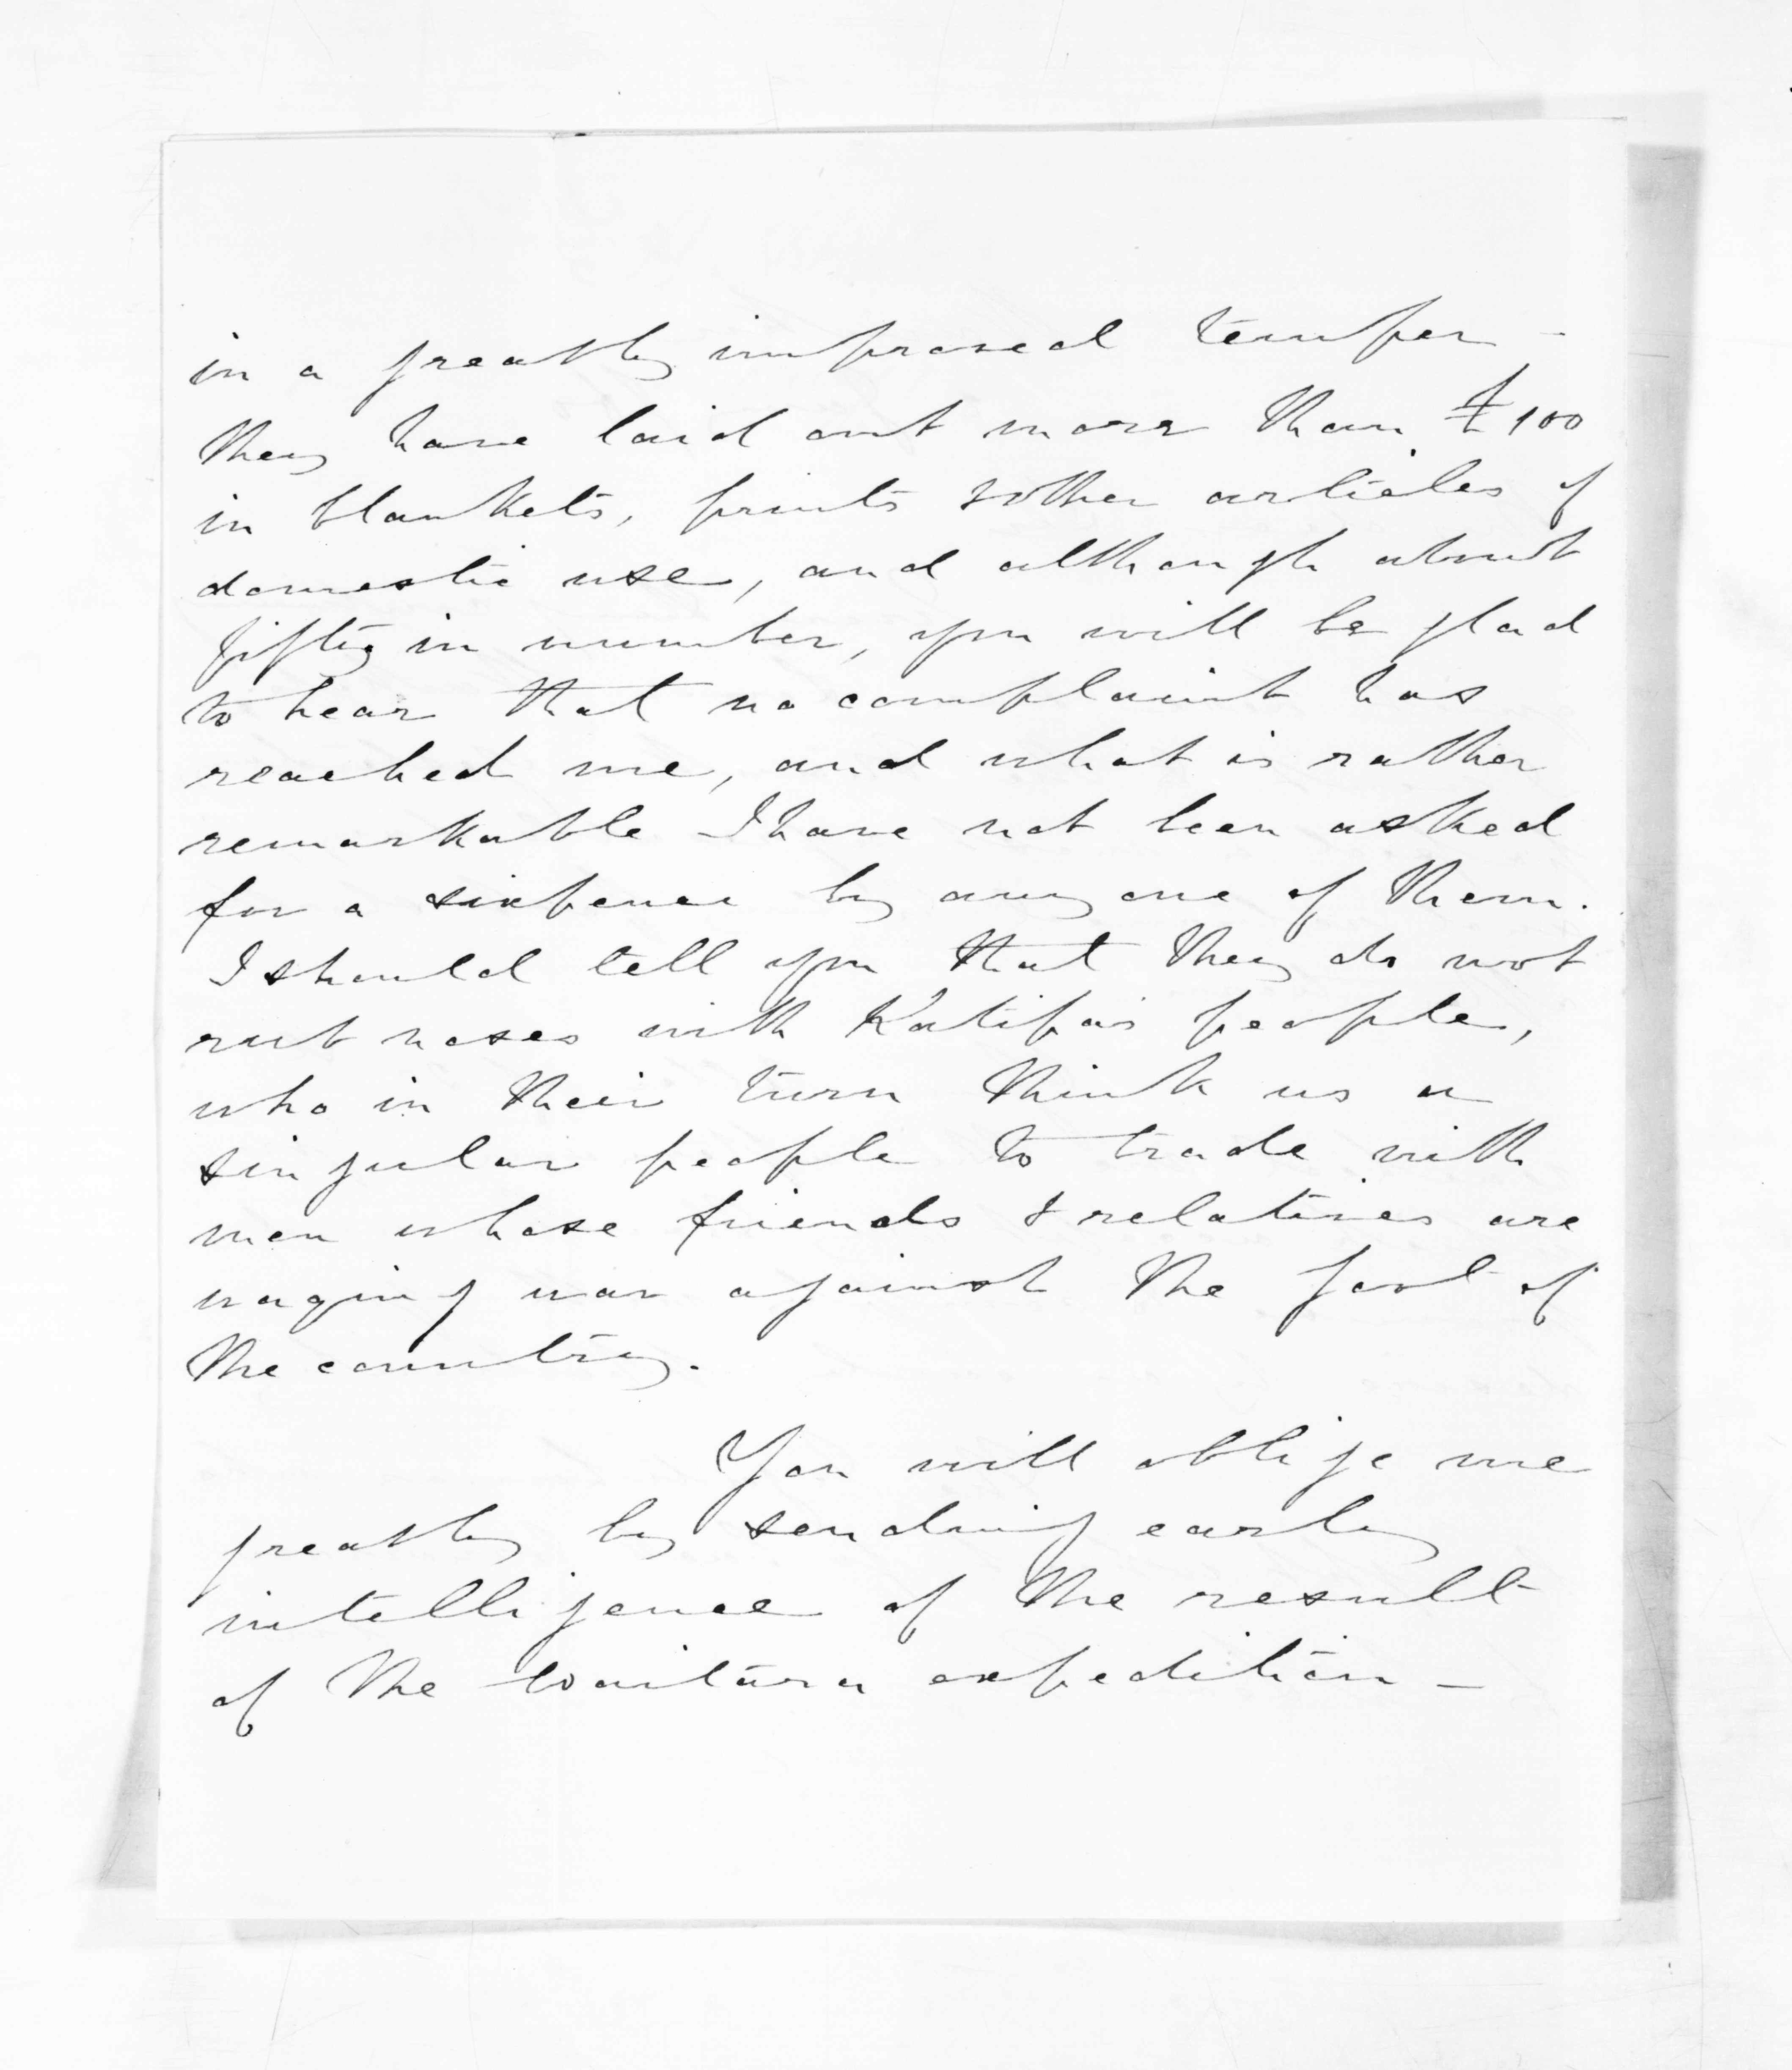 in a greatly improved temper -
they have laid out more than £100
in blankets, prints & other articles of
domestic use, and although about
fifty in number, you will be glad
to hear that no complaint has
reached me, and what is rather
remarkable I have not been asked
for a sixpence by any one of them.
I should tell you that they do not
rub noses with Katipa's people,
who in their turn think us a
singular people to trade with
men whose friends & relatives are
waging war against the Govt of
the country.
You will oblige me
greatly by sending early
intelligence of the result
of the Waitara expedition -